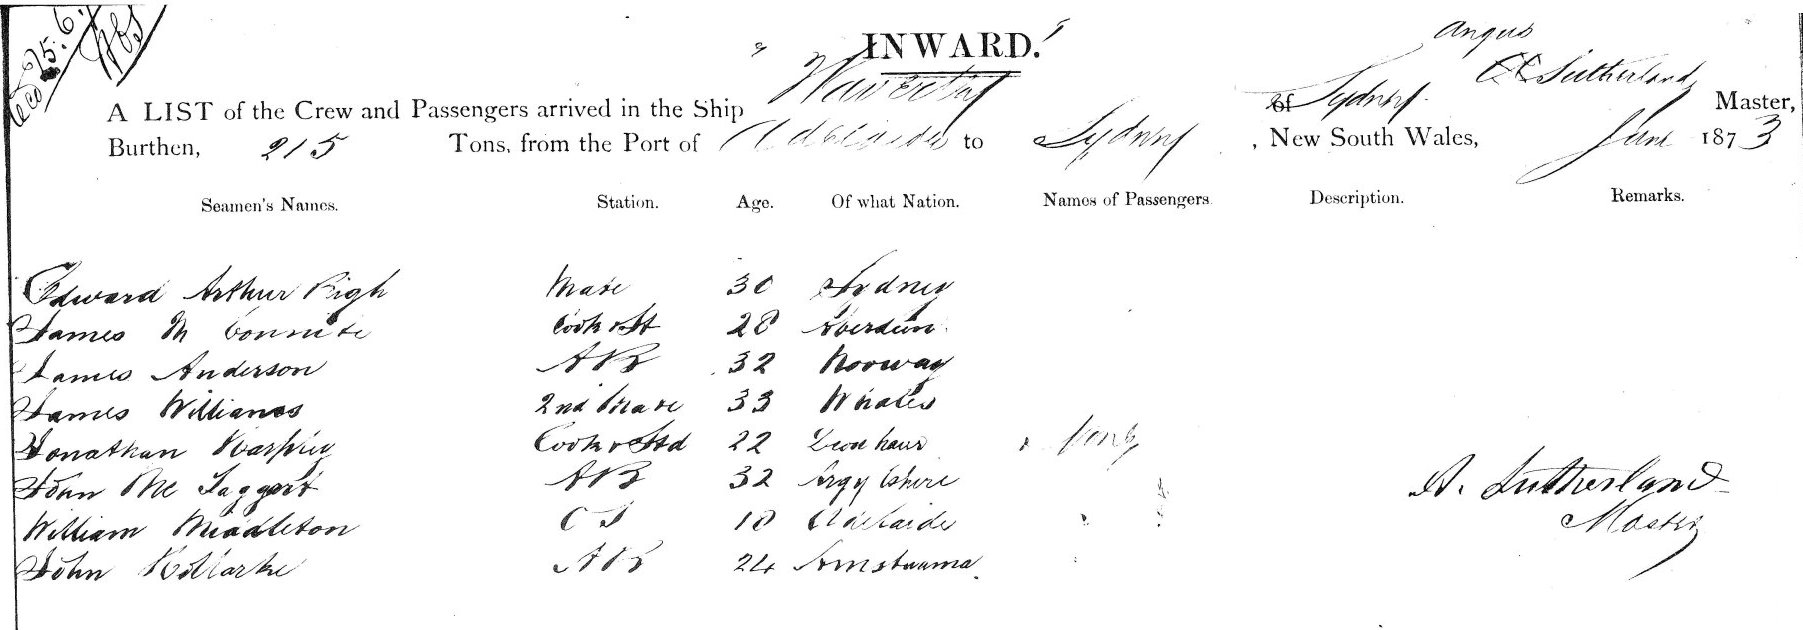 INWARD.
Angus
A LIST of the Crew and Passengers arrived in the Ship "Waverley" of Sydney Sutherland Master,
Burthen, 215 Tons, from the Port of Adelaide to Sydney, New South Wales, June 1873
Seamen's Names. Station. Age. Of what Nation. Names of Passengers. Description. Remarks.
Edward Arthur Mate 30 Sydney
James M Cook & St 28 Aberdeen
James Anderson AB 32 Norway
James Williams 2nd Mate 33 Whales
Jonathan Cook & Std 22 None
John Mc Taggert AB 32 Argylshire A. Sutherland
William Middleton O S 18 Adelaide Master
John AB 24